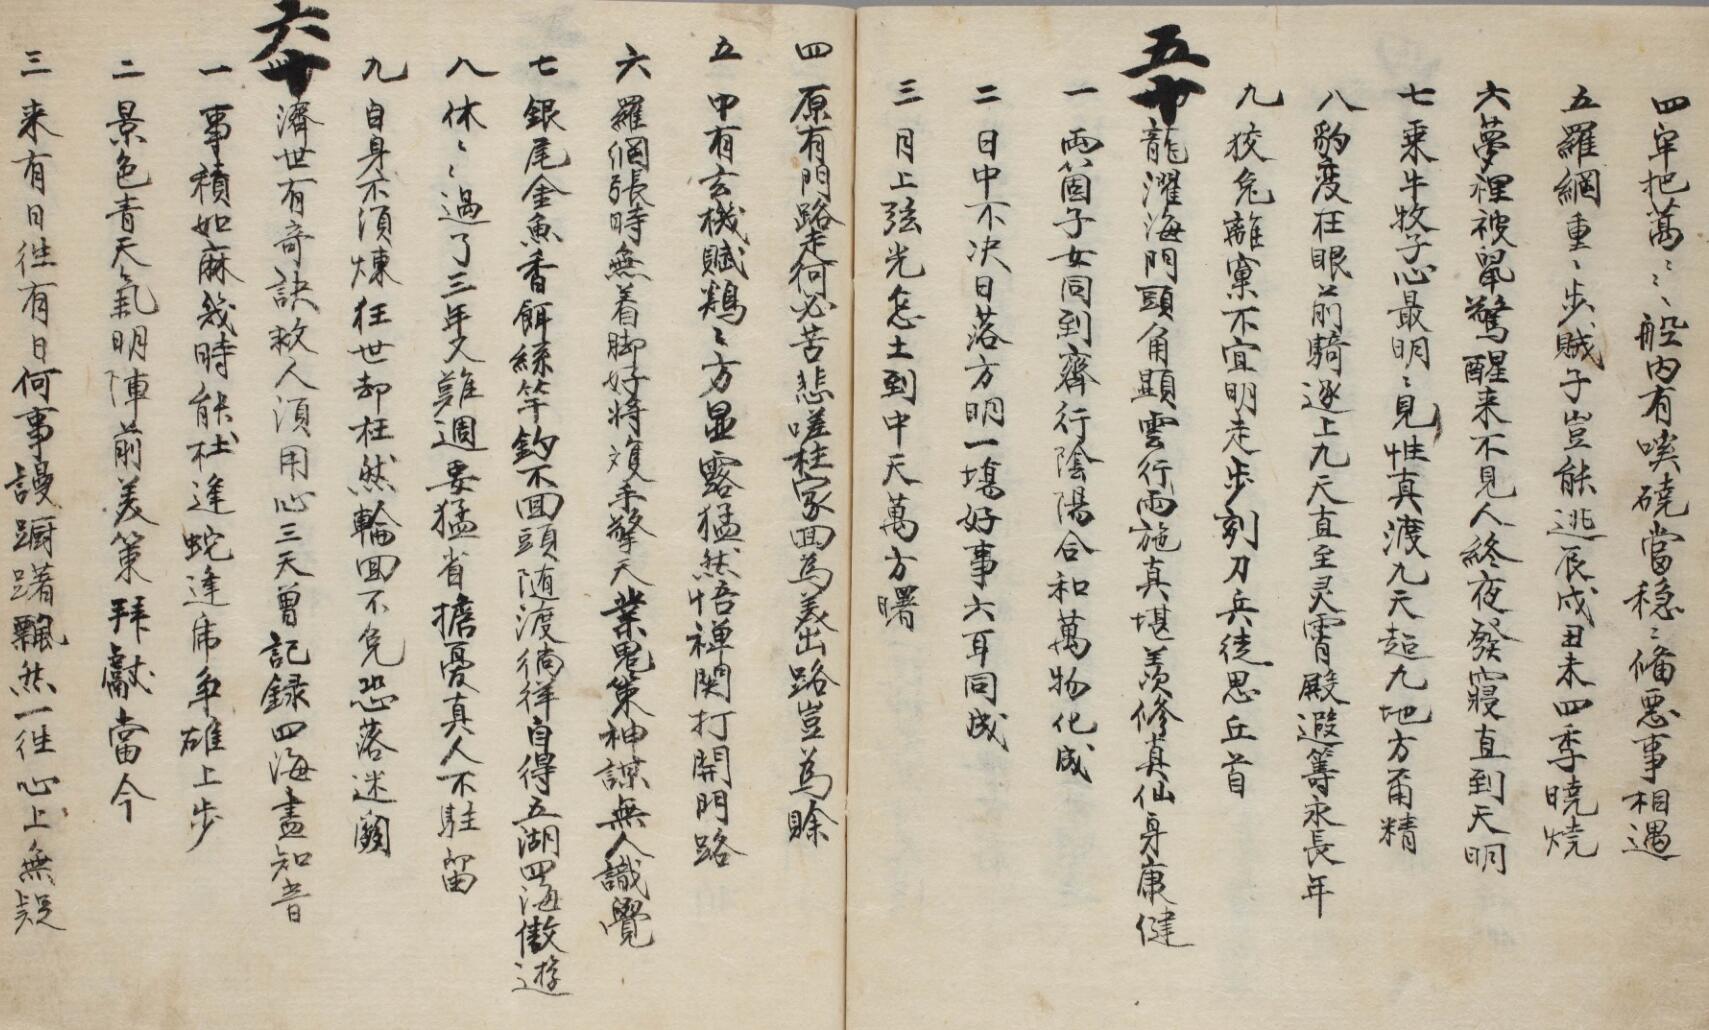 四 牢把萬〻〻船内有喫磽當穏〻俻惡事相遇
五 羅網重〻步賊子豈能逃辰戌丑未四季曉燒
六 夢裡被鼠驚醒来不見人終夜發寢直到天明
七 乗牛牧子心最明〻見性真渡九天超九地方甬精
八 豹変在眼前騎逐上九天直至灵霄殿遐筭永長年
九 狡兔離窠不宜明走步刻刀兵徒思丘首
五十 龍濯海門頭角顯雲行雨施真堪羡修真仙身康健
一 兩箇子女同到齊行陰陽合和萬物化成
二 日中不决日落方明一塲好事六耳同成
三 月上弦光怎土到中天萬方曙
四 原有門路走何必苦悲嗟柱家回為美出路豈為賒
五 中有玄機賦鷄〻方显露猛然悟禅関打開門路
六 羅網張時無着脚好将須手擎天業鬼策神謀無人識覺
七 銀尾金魚香餌絲竿釣不回頭随渡徜徉自得五湖四海傲遊
八 休〻過了三年久難週要猛省擔憂真人不駐留
九 自身不須煉狂世却枉然輪回不免恐落迷闗
六十 濟世有奇訣救人須用心三天曾記録四海盡知音
一 事積如麻幾時能杜逢蛇逢虎争雄上步
二 景色青天氣明陣前美策拜獻當今
三 来有日徃有日何事謾蹰躇飄然一徃心上無疑